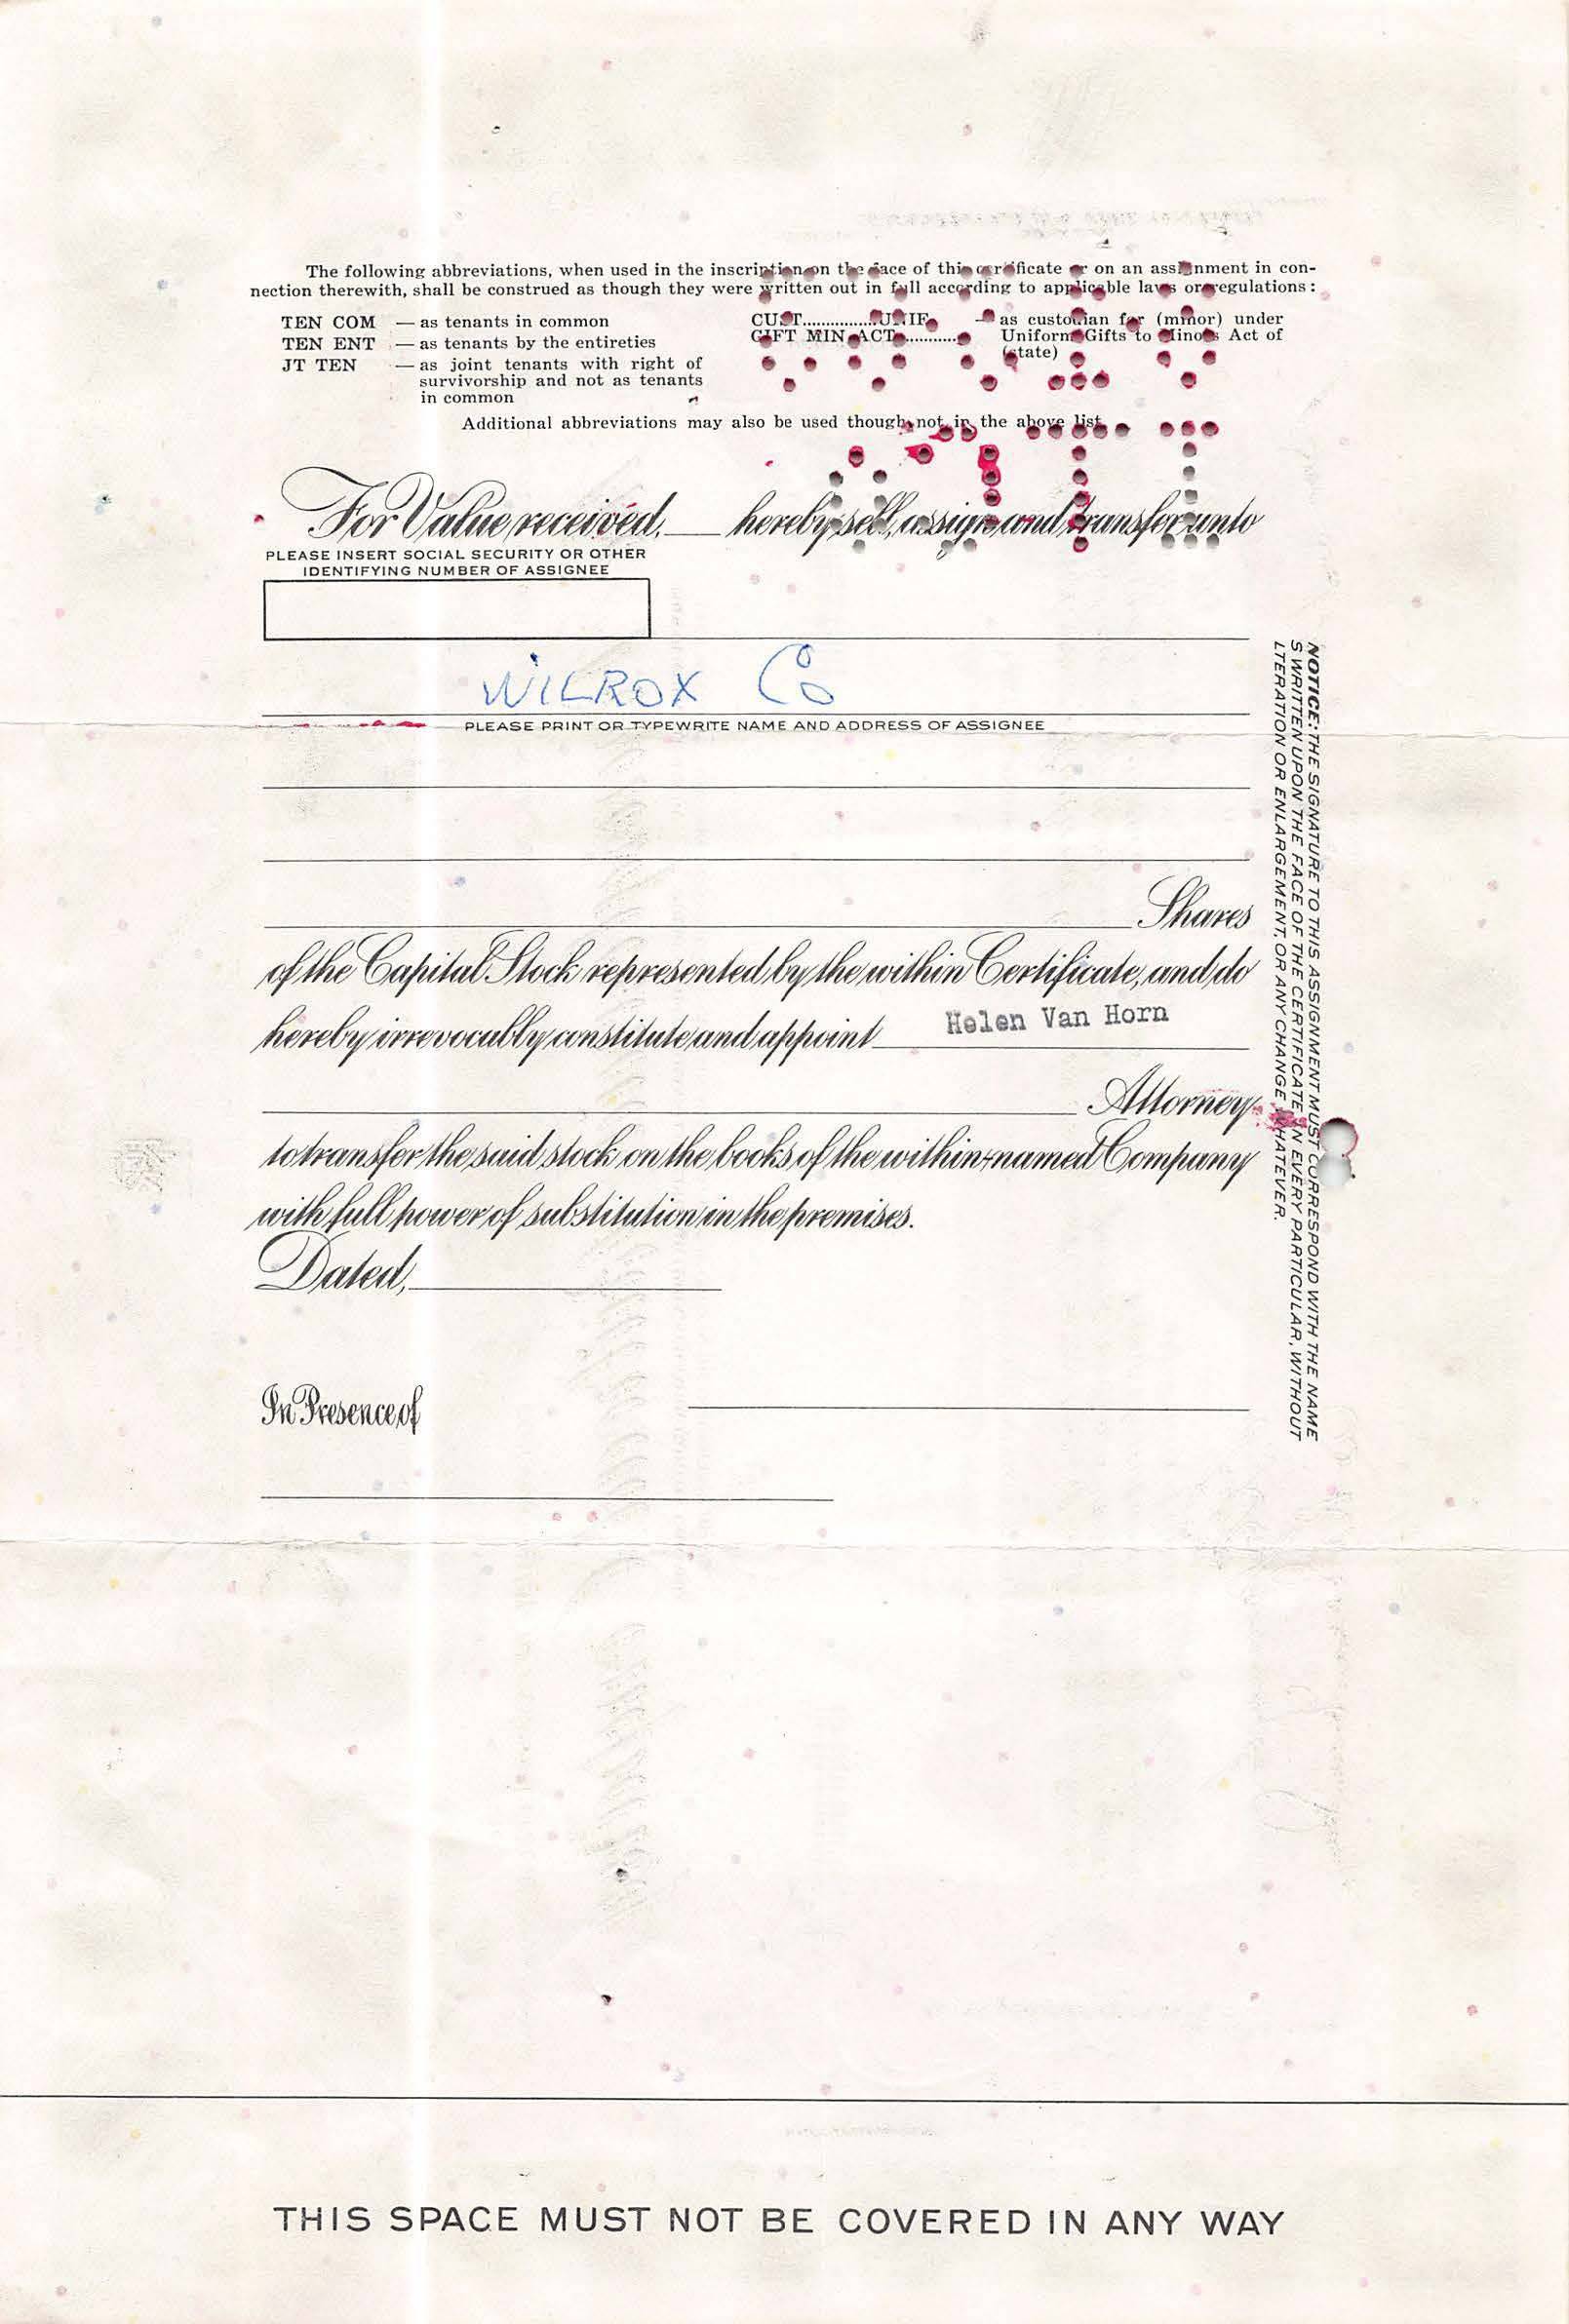 The following abbreviations, when used in the inscription on the face of this certificate or on an assignment in con-
nection therewith, shall be construed as though they were written out in full according to applicable laws or regulations:
TEN COM — as tenants in common
TEN ENT — as tenants by the entireties
JT TEN — as joint tenants with right of
survivorship and not as tenants
in common
CUST...............UNIF. — as custodian for (minor) under
GIFT MIN ACT............ Uniform Gifts to Minors Act of
(state)
Additional abbreviations may also be used though not in the above list.
For Value received, ____ hereby sell, assign and transfer unto
PLEASE INSERT SOCIAL SECURITY OR OTHER
IDENTIFYING NUMBER OF ASSIGNEE
WILROX Co
PLEASE PRINT OR TYPEWRITE NAME AND ADDRESS OF ASSIGNEE
Shares
of the Capital Stock represented by the within Certificate, and do
hereby irrevocably constitute and appoint Helen Van Horn
Attorney
to transfer the said stock on the books of the within-named Company
with full power of substitution in the premises.
Dated,
In Presence of
NOTICE: THE SIGNATURE TO THIS ASSIGNMENT MUST CORRESPOND WITH THE NAME
S WRITTEN UPON THE FACE OF THE CERTIFICATE IN EVERY PARTICULAR, WITHOUT
LTERATION OR ENLARGEMENT, OR ANY CHANGE WHATEVER.
THIS SPACE MUST NOT BE COVERED IN ANY WAY